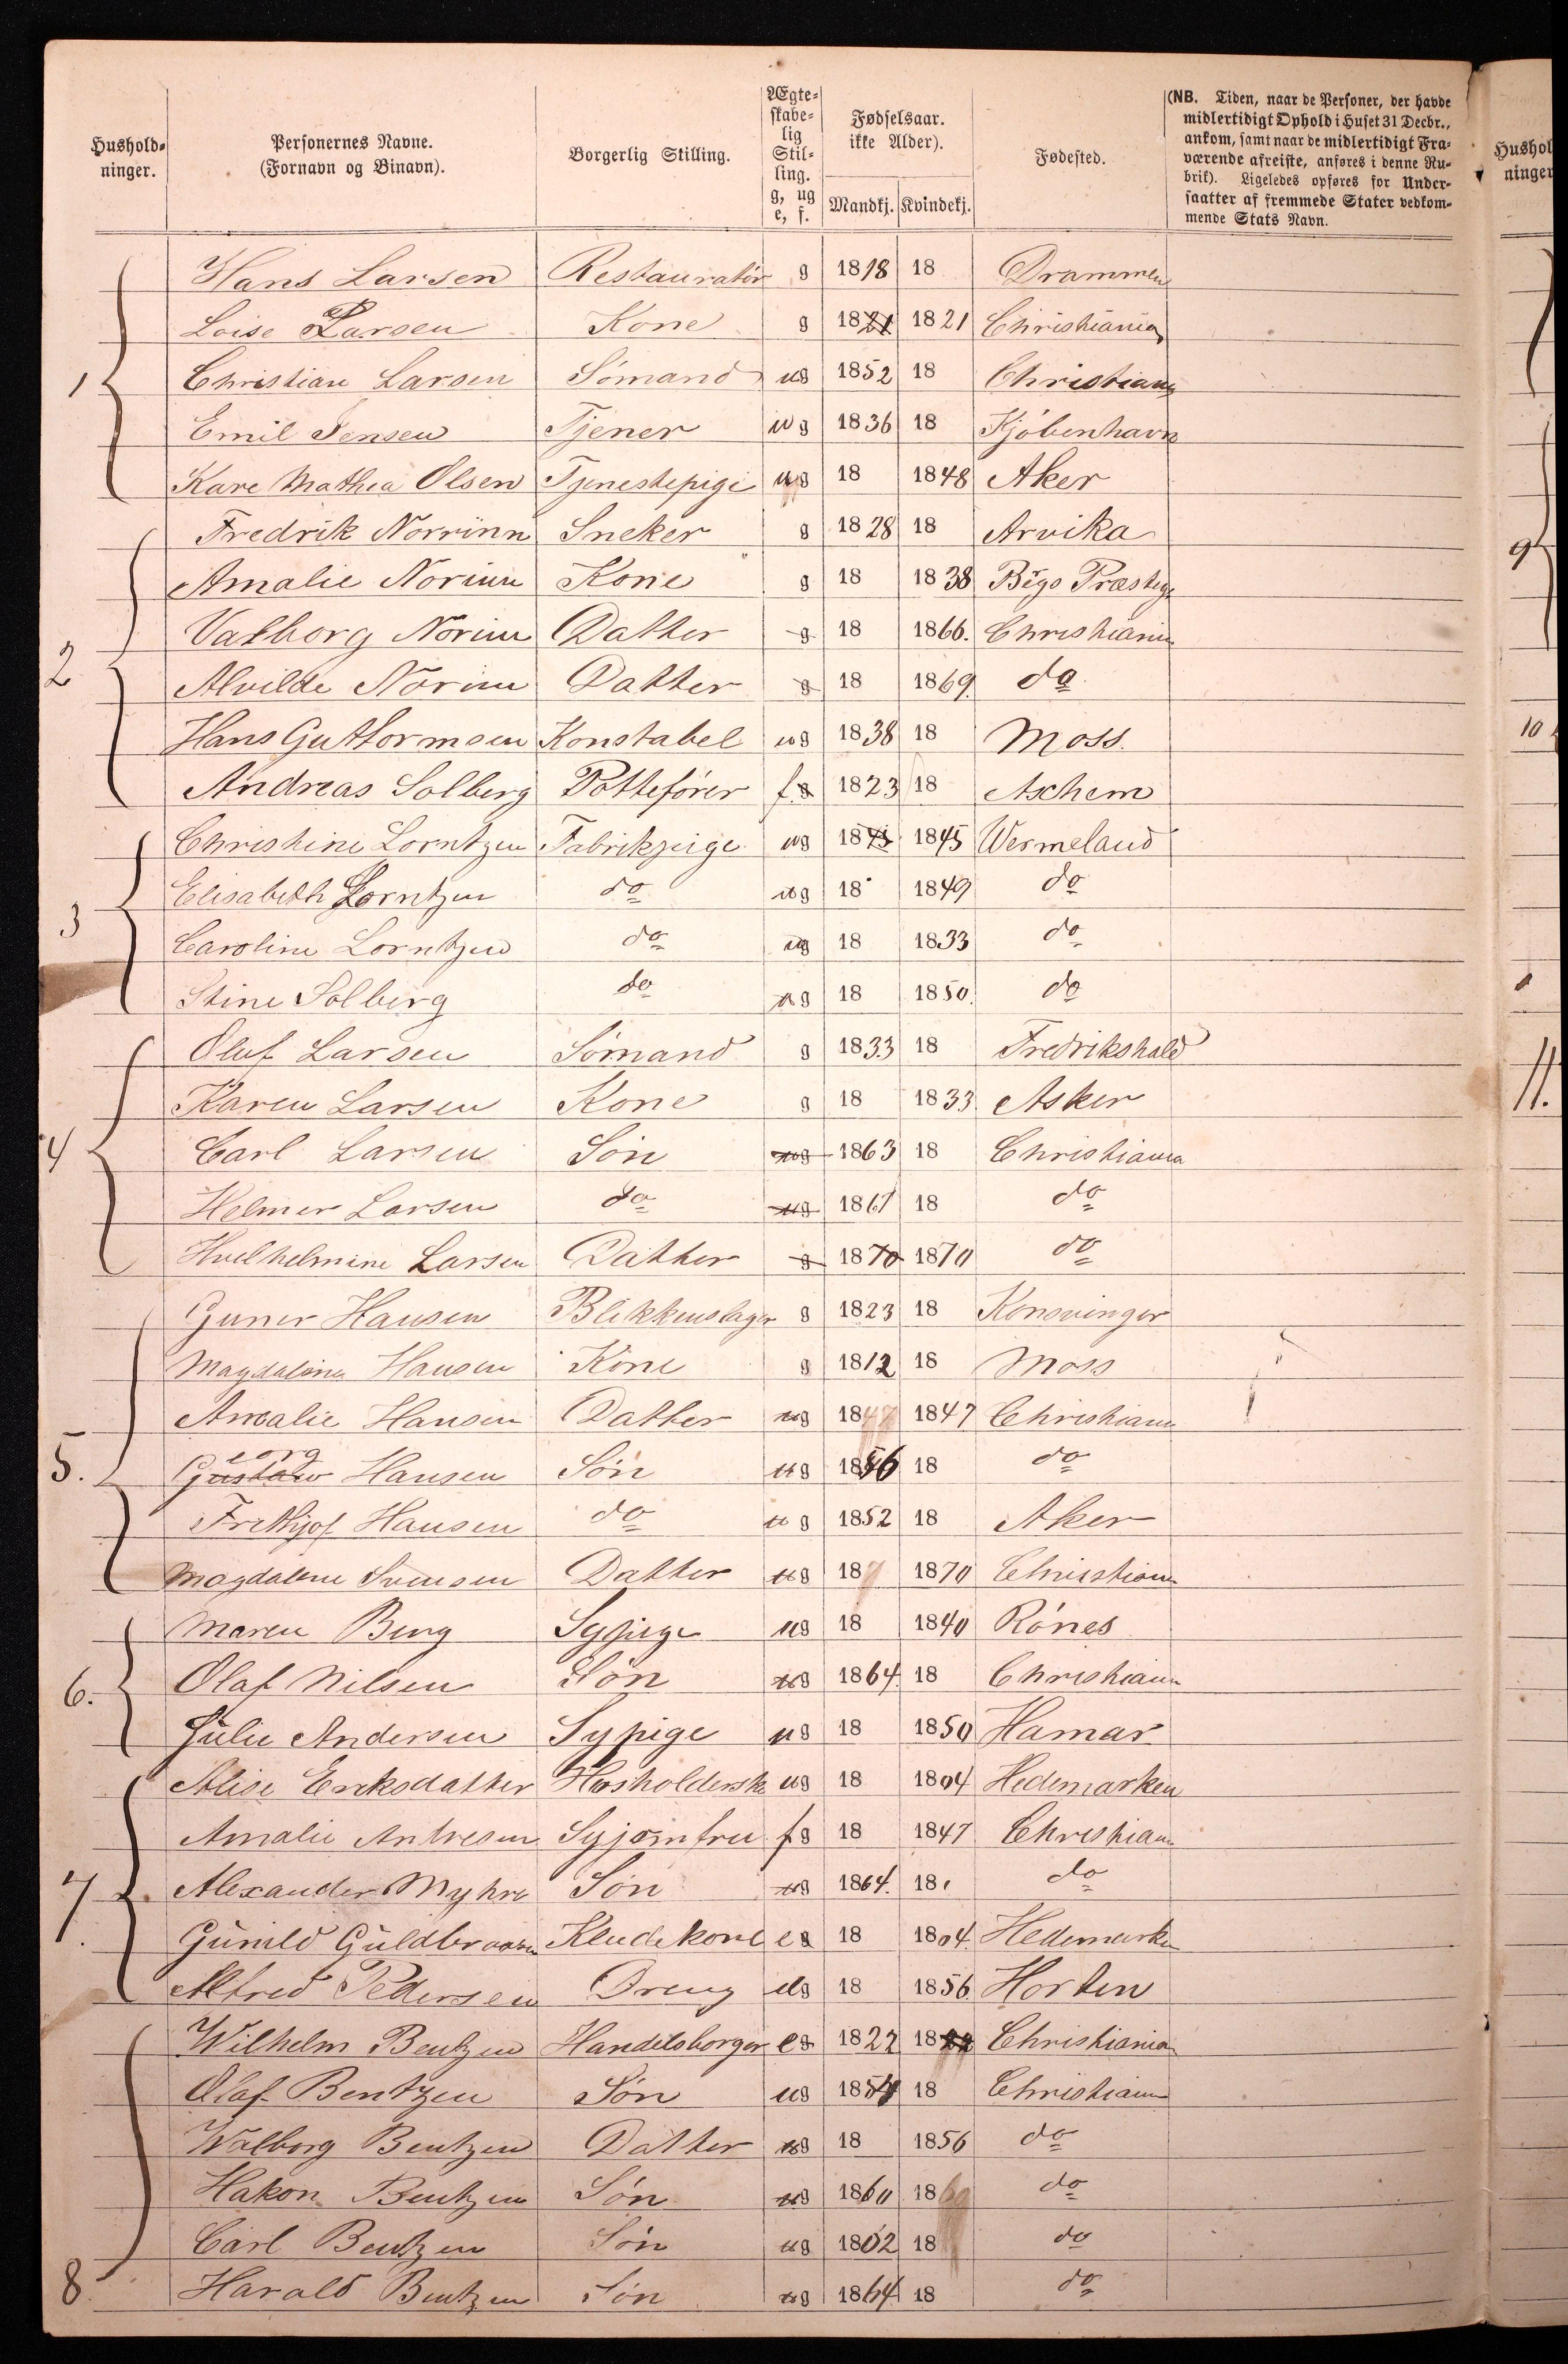 Hushold-ninger. Personernes Navne. (Fornavn og Binavn). Borgerlig Stilling. Ægte-skabe-lig Stil-ling. g, ug e, f. Fødselsaar. ikke Alder). Mandkj. Kvindekj. Fødested. (NB. Tiden, naar de Personer, der havde midlertidigt Ophold i Huset 31 Decbr., ankom, samt naar de midlertidigt Fra-værende afreiste, anføres i denne Ru-brik). Ligeledes opføres for Under-saatter af fremmede Stater vedkom-mende Stats Navn.
Hans Larsen Restauratör g 1818 18 Drammen
Loise Larsen Kone g 1821 1821 Christiania
1 Christian Larsen Sömand ug 1852 18 Christiania
Emil Jensen Tjener ug 1836 18 Kjöbenhavn
Kare Mathea Olsen Tjenestepige ug 18 1848 Aker
Fredrik Norrinn Sneker g 1828 18 Arvika
Amalie Norinn Kone g 18 1838 Præsteg
Valborg Norinn Datter g 18 1866. Christiania
2 Alvilde Norinn Datter g 18 1869. do
Hans Guttormsen Konstabel ug 1838 18 Moss.
Andreas Solberg Potteförer f g 1823 18 Aschem
Christine Lorntzen Fabrikpige ug 1845 1845 Wermeland
Elisabeth Lorntzen do ug 18 1849 do
3 Caroline Lorntzen do ug 18 1833 do
Stine Solberg do ug 18 1850. do
Oluf Larsen Sömand g 1833 18 Fredrikshald
Karen Larsen Kone g 18 1833 Asker
4 Carl Larsen Sön ug 1863 18 Christiania
Helmer Larsen do ug 1867 18 do
Hvelhelmine Larsen Datter g 1870 1870 do
Guner Hansen Blikkenslager g 1823 18 Konsvinger
Magdalena Hansen Kone g 1812 18 Moss
Amalie Hansen Datter ug 1847 1847 Christiania
5. Gustaw eorg Hansen Sön ug 1856 18 do
Frithjof Hansen do ug 1852 18 Aker
Magdalene Svensen Datter ug 187 1870 Christiania
Maren Berg Sypige ug 18 1840 Rönes
6. Olaf Nilsen Sön ug 1864. 18 Christiania
Julie Andersen Sypige ug 18 1850 Hamar
Alise Eriksdatter Husholderske ug 18 1804 Hedemarken
Amalie Andresen Syjomfru f g 18 1847 Christiania
7. Alexander Myhre Sön ug 1864. 18 do
Gunild Guldbransen Kludekone e g 18 1804. Hedemarken
Alfred Pedersen Dreng ug 18 1856. Horten
Wilhelm Bentzen Handelsborger e g 1822 1822 Christiania
Olaf Bentzen Sön ug 1854 18 Christiania
Walborg Bentzen Datter ug 18 1856 do
Hakon Bentzen Sön ug 1860 1860 do
Carl Bentzen Sön ug 1862 18 do
8. Harald Bentzen Sön ug 1864 18 do
Hushol ninger
9
10
11.